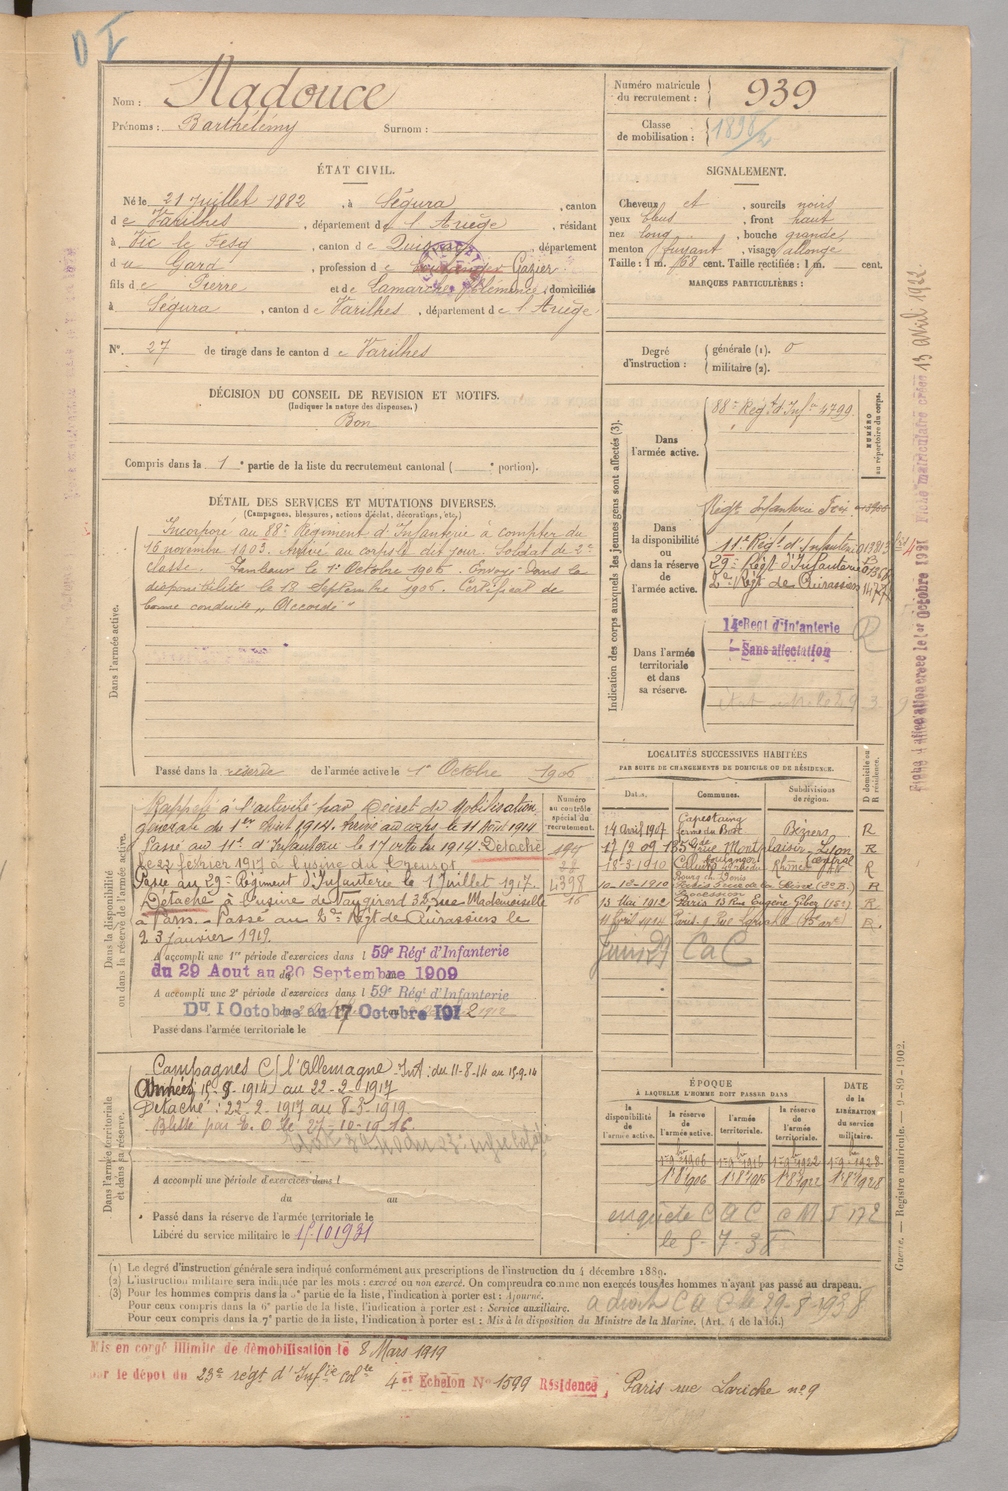 D I
Nom : Nadouce
Prénoms : Barthélémy Surnom :
Numéro matricule du recrutement : 939
Classe de mobilisation : 1898/2
ÉTAT CIVIL.
Né le 21 Juillet 1882, à Ségura, canton
de Varilhes, département d l'Ariège résidant
à Vic le Fesq, canton de Quissac, département
du Gard, profession de Gazier
fils de Pierre et de Lamarche Clémence, domiciliés
à Ségura, canton de Varilhes, département de l'Ariège
N° 27 de tirage dans le canton de Varilhes
SIGNALEMENT.
Cheveux et, sourcils noirs
yeux bleus, front haut
nez long, bouche grande
menton fuyant, visage allongé
Taille : 1 m. 68 cent. Taille rectifiée : 1 m. cent.
MARQUES PARTICULIÈRES :
Degré d'instruction : générale (1). 0
militaire (2).
DÉCISION DU CONSEIL DE REVISION ET MOTIFS.
(Indiquer la nature des dispenses.)
Bon
Compris dans la 1e partie de la liste du recrutement cantonal ( e portion).
DÉTAIL DES SERVICES ET MUTATIONS DIVERSES.
(Campagnes, blessures, actions d'éclat, décorations, etc.)
Dans l'armée active.
Incorporé au 88e Régiment d'Infanterie à compter du
16 novembre 1903. Arrivé au corps le dit jour. Soldat de 2e
classe. Tambour le 1er Octobre 1905. Envoyé dans la
disponibilité le 18 Septembre 1906. Certificat de
bonne conduite "Accordé"
Passé dans la réserve de l'armée active le 1er Octobre 1906
Indication des corps auxquels les jeunes gens sont affectés (3).
NUMÉRO au répertoire du corps.
Dans l'armée active.
88e Regt d'Infie 4799
Dans la disponibilité ou dans la réserve de l'armée active.
Régt Infanterie Foix
11e Régt d'Infanterie
29e Régt d'Infanterie
2e Régt de Cuirassiers
Dans l'armée territoriale et dans sa réserve.
14e Regt d'Infanterie
Sans affectation
Fiche d'affectation créée le 1er Octobre 1921 Fiche matriculaire créée 13 avril 1922
LOCALITÉS SUCCESSIVES HABITÉES
PAR SUITE DE CHANGEMENTS DE DOMICILE OU DE RÉSIDENCE.
Dates. Communes. Subdivisions de région. D domicile ou R résidence.
14 Avril 1907 Capestang ferme du Bosc Béziers R
17/2 09 135 rue Montplaisir Lyon R
18-3-1910 Rhône R
10-12-1910 R
13 Mai 1912 Paris 13 Rue Eugène Gibez (15e) R
11 Avril 1914 R.
C a C
Dans la disponibilité ou dans la réserve de l'armée active.
Numéro au contrôle spécial du recrutement.
Rappelé à l'activité par Décret de Mobilisation
générale du 1er Août 1914. Arrivé au corps le 11 Août 1914
Passé au 11e d'Infanterie le 17 octobre 1914. Détaché
le 22 février 1917 à l'usine du Creusot.
Passé au 29e Régiment d'Infanterie le 1 Juillet 1917. 4398
Détaché à l'usine de Vaugirard 32 rue Mademoiselle
à Paris. Passé au 2e Régt de Cuirassiers le
23 janvier 1919.
A accompli une 1re période d'exercices dans l 59e Régt d'Infanterie
du 29 Aout au 20 Septembre 1909
A accompli une 2e période d'exercices dans l 59e Régt d'Infanterie
Du 1 Octobre au 17 Octobre 1912
Passé dans l'armée territoriale le
Dans l'armée territoriale et dans sa réserve.
Campagnes C/ l'Allemagne Int : du 11-8-14 au 15-9-14
Armées 15-9-1914 au 22-2-1917
Détaché : 22.2.1917 au 8-3-1919
Blessé par E. O le 27-10-1916
A accompli une période d'exercices dans l
du au
Passé dans la réserve de l'armée territoriale le
Libéré du service militaire le 15-10 1931
ÉPOQUE
À LAQUELLE L'HOMME DOIT PASSER DANS
la disponibilité de l'armée active. la réserve de l'armée active. l'armée territoriale. la réserve de l'armée territoriale. DATE de la LIBÉRATION du service militaire.
1-9bre 1906 1-9bre 1916 1-9bre 1922 1-9bre 1928
1er 8bre 1906 1er 8bre 1916 1er 8bre 1922 1er 8bre 1928
enquête C a C
le 5-7-38
(1) Le degré d'instruction générale sera indiqué conformément aux prescriptions de l'instruction du 4 décembre 1889.
(2) L'instruction militaire sera indiquée par les mots : exercé ou non exercé. On comprendra comme non exercés tous les hommes n'ayant pas passé au drapeau.
(3) Pour les hommes compris dans la 5e partie de la liste, l'indication à porter est : Ajourné.
Pour ceux compris dans la 6e partie de la liste, l'indication à porter est : Service auxiliaire.
Pour ceux compris dans la 7e partie de la liste, l'indication à porter est : Mis à la disposition du Ministre de la Marine. (Art. 4 de la loi.)
a droit C a C le 29-8-1938
Guerre. — Registre matricule. — 9-89-1902.
Mis en congé illimité de démobilisation le 8 Mars 1919
par le dépôt du 23e régt d'Infie Colle 4e Echelon N° 1599 Résidence, Paris rue Lariche n° 9